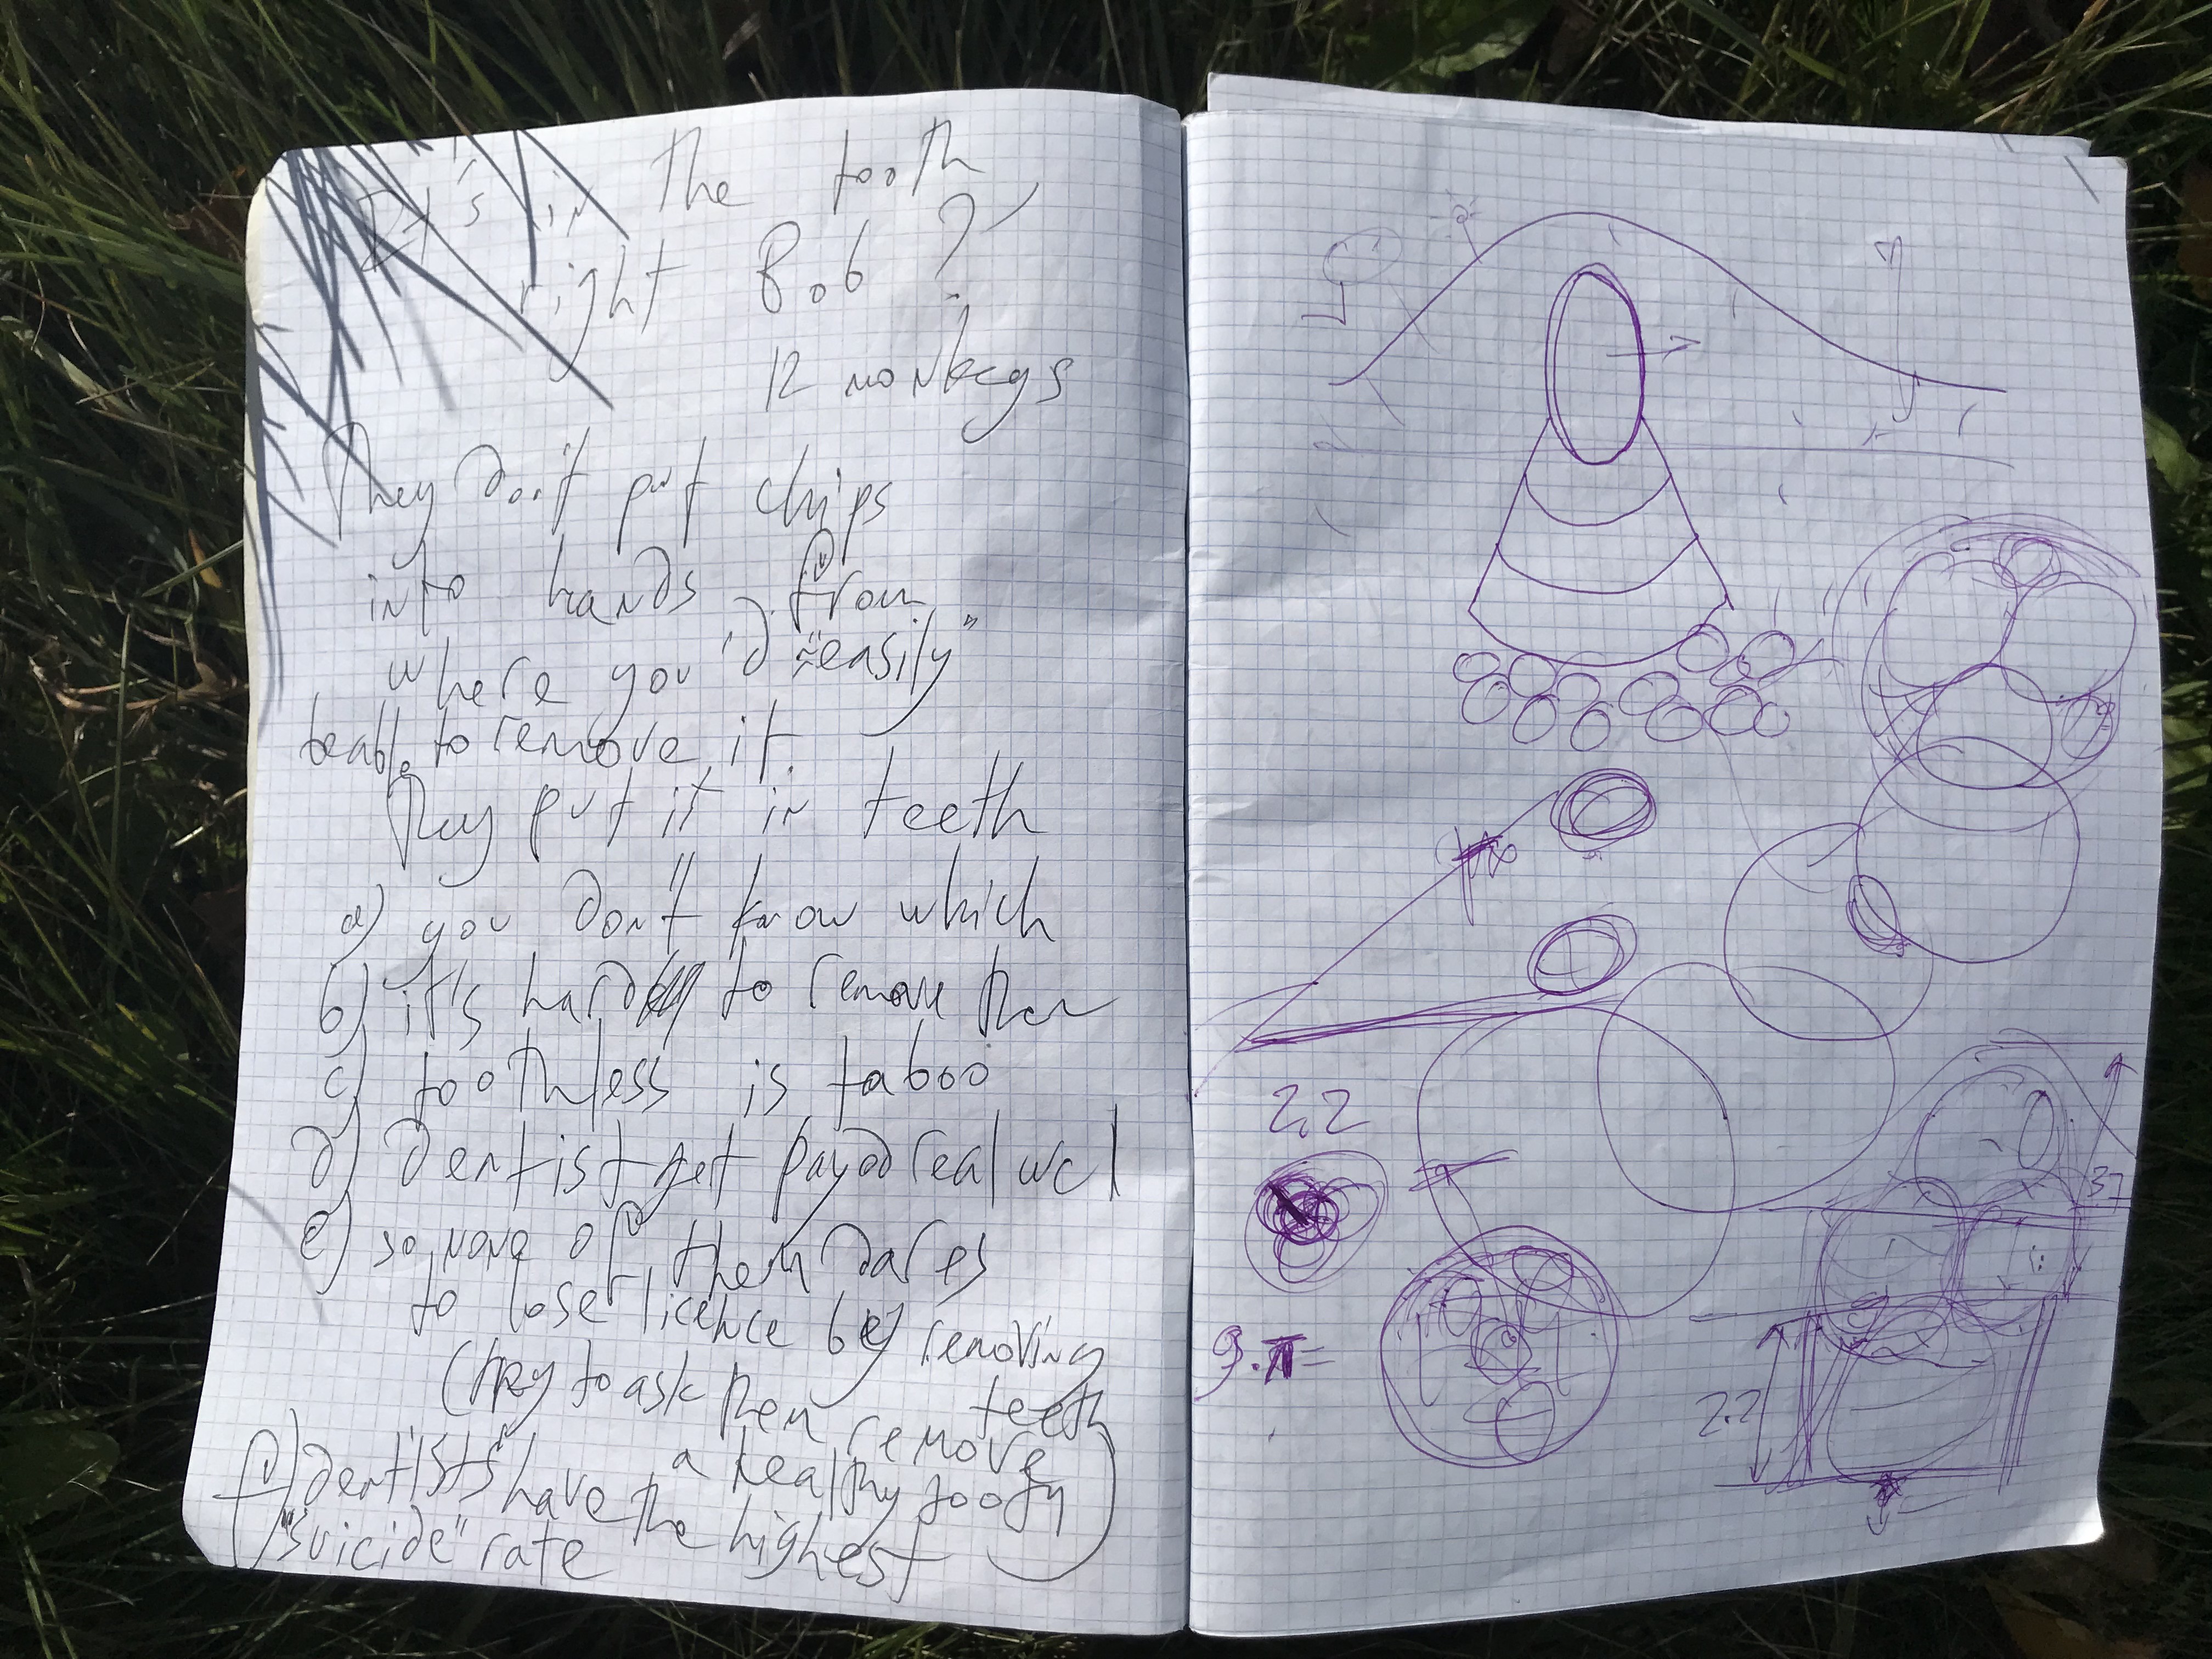 It's in the tooth
right Bob ?
12 monkeys
They don't put chips
into hands from
where you "easily"
able to remove it.
They put it in teeth
a) you don't know which
b) it's harder to remove then
c) toothless is taboo
d) Dentist get payed real wel
e) so none of them dares
to loser licence by removing
(try to ask them remove teeth
a healthy tooth)
f) Dentists have the highest
"suicide" rate
2,2
9.π=
2.2
37